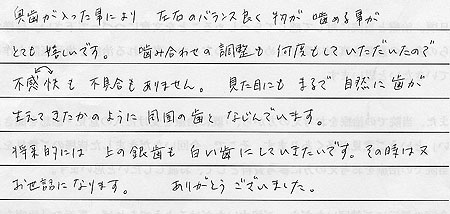 奥歯が入った事により 左右のバランス良く物が噛める事が
とても嬉しいです。 噛み合わせの調整も何度もしていただいたので
不感快も不具合もありません。 見た目にもまるで自然に歯が
生えてきたかのように周囲の歯となじんでいます。
将来的には 上の銀歯も白い歯にしていきたいです。その時は又
お世話になります。 ありがとうございました。